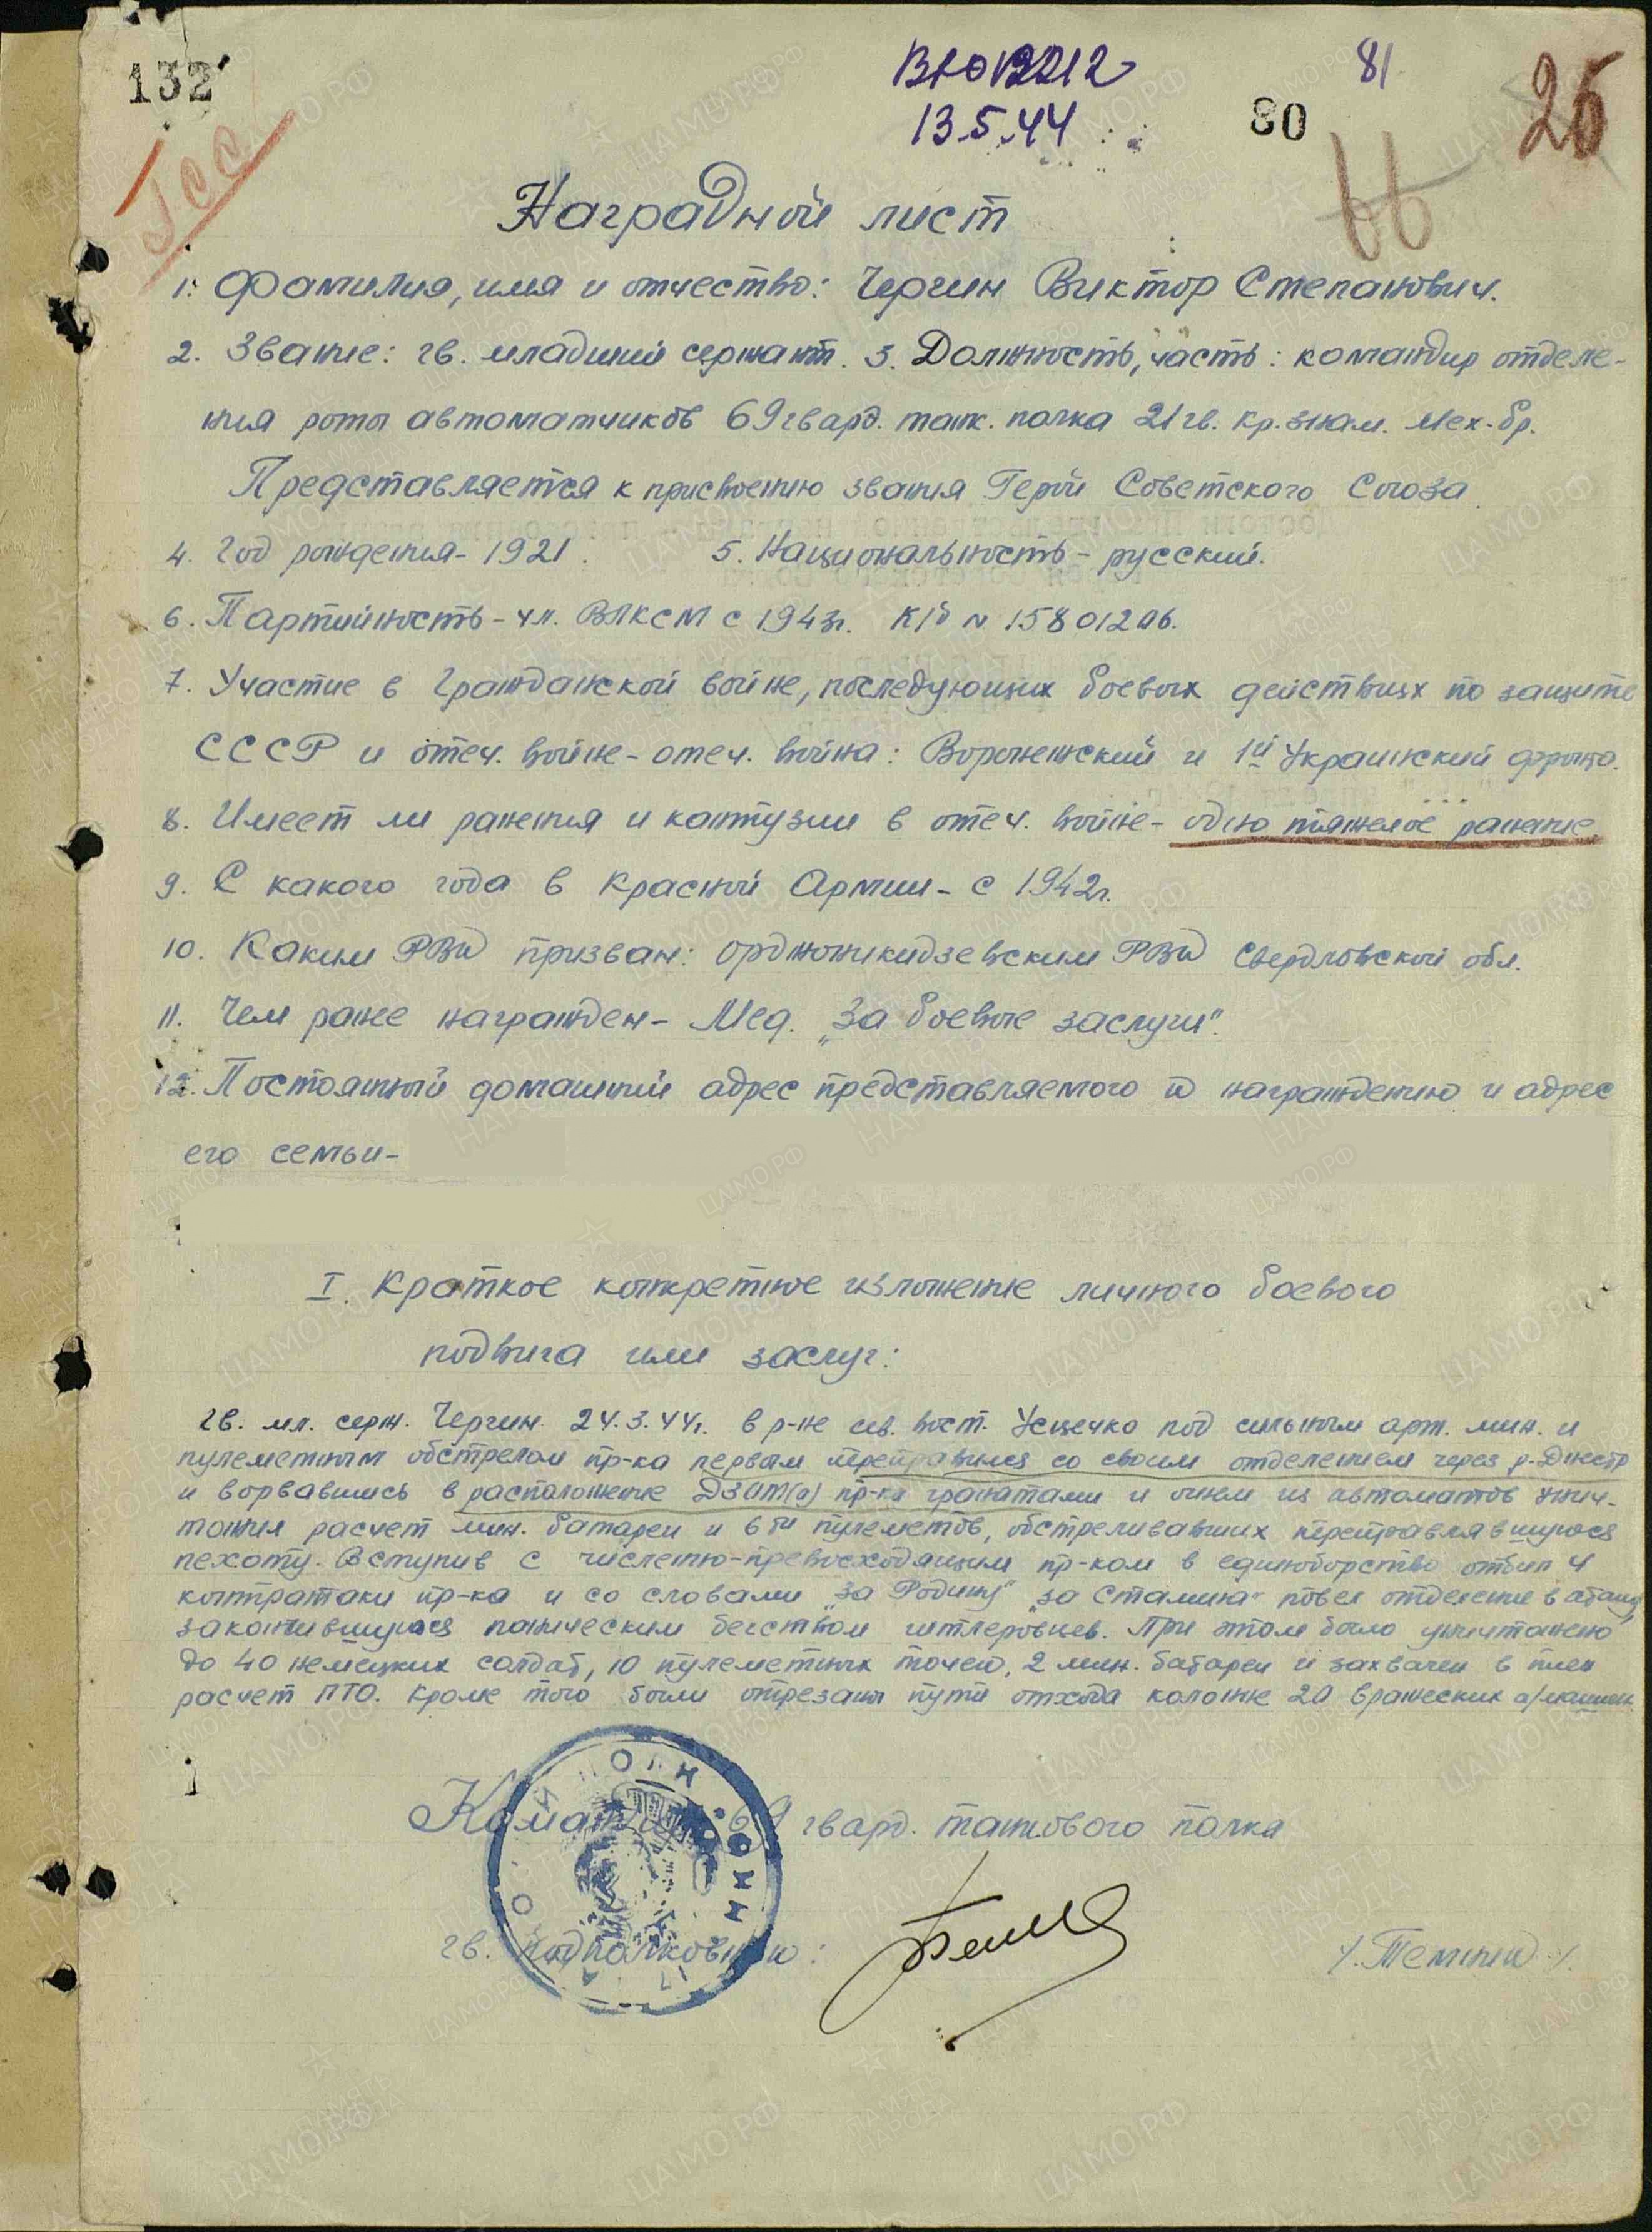 132
81
13.5.44
80
26
ГСС
66
Наградной лист
1. Фамилия, имя и отчество: Чергин Виктор Степанович.
2. Звание: гв. младший сержант. 3. Должность, часть: командир отделе-
ния роты автоматчиков 69 гвард. танк. полка 21 гв. Кр. знам. мех. бр.
Представляется к присвоению звания Герой Советского Союза
4. Год рождения - 1921. 5. Национальность - русский.
6. Партийность - чл. ВЛКСМ с 1943г. К/б N 15801206.
7. Участие в гражданской войне, последующих боевых действиях по защите
СССР и отеч. войне - отеч. война: Воронежский и 1й Украинский фронт.
8. Имеет ли ранения и контузии в отеч. войне - одно тяжелое ранение.
9. С какого года в Красной Армии - с 1942г.
10. Каким РВК призван: Орджоникидзевским РВК Свердловской обл.
11. Чем ранее награжден - Мед. "За боевые заслуги".
12. Постоянный домашний адрес представляемого к награждению и адрес
его семьи -
I. Краткое конкретное изложение личного боевого
подвига или заслуг:
гв. мл. серж. Чергин 24.3.44г. в р-не сев. вост. Усцечко под сильным арт. мин. и
пулеметным обстрелом пр-ка первым переправился со своим отделением через р. Днестр
и ворвавшись в расположение ДЗОТ(а) пр-ка гранатами и огнем из автоматов унич-
тожил расчет мин. батареи и 6ти пулеметов, обстреливавших переправлявшуюся
пехоту. Вступив с численно-превосходящим пр-ком в единоборство отбил 4
контратаки пр-ка и со словами "за Родину" "за Сталина" повел отделение в атаку,
закончившуюся паническим бегством гитлеровцев. При этом было уничтожено
до 40 немецких солдат, 10 пулеметных точек, 2 мин. батареи и захвачен в плен
расчет ПТО. Кроме того были отрезаны пути отхода колонне 20 вражеских а/машин.
Командир 69 гвард. танкового полка
гв. подполковник: /.Темник./